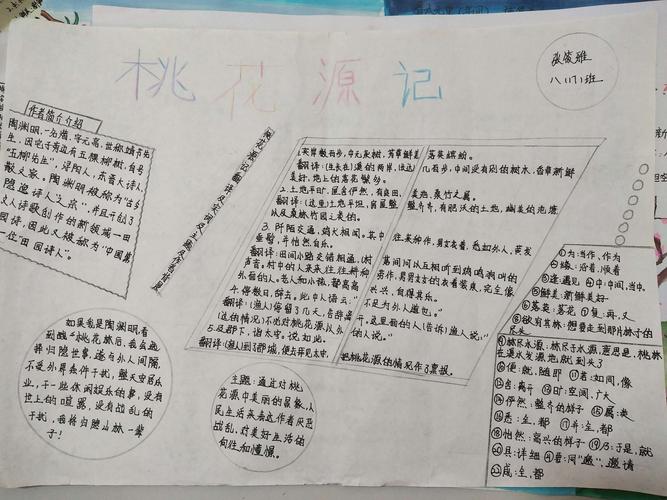 桃花源记
八(17)班
作者简介介绍
陶渊明,一名潜,字元亮,世称靖节先
生,因宅子旁边有五棵柳树,自号
"五柳先生",浔阳人,东晋大诗人,
散文家。陶渊明被称为"古今
隐逸诗人之宗",并且开创了
文人诗歌创作的新领域—田
园诗,因此又被称为"中国第
一位"田园诗人"。
桃花源记翻译及实词及主题及作者背景
1.夹岸数百步,中无杂树,芳草鲜美 落英缤纷。
翻译:(生长在)溪的两岸,长达 几百步,中间没有别的树木,花草新鲜
美好,地上的落花繁多。
2.土地平旷,屋舍俨然,有良田、 美池、桑竹之属。
翻译:(这里)土地平坦,房屋整 整齐齐,有肥沃的土地,幽美的池塘
以及桑林竹园之类的。
3.阡陌交通,鸡犬相闻。其中 往来种作,男女衣着,悉如外人,黄发
垂髫,并怡然自乐。
翻译:田间小路交错相通,(村 落间)可以互相听到鸡鸣狗叫的
声音。村中的人来来往往,耕种 劳作,男男女女的衣着装束,完全像
外面的人。老人和小孩,都高高 兴兴,自得其乐。
4.停数日,辞去。此中人语云:" 不足为外人道也。"
翻译:(渔人)停留了几天,告辞离 开。这里面的人(告诉)渔人说,"
(这的情况)不必对桃花源以外 的人说。"
5.及郡下,诣太守,说如此。
翻译:(渔人)到了郡城,便去拜见太守, 把桃花源的情况作了禀报。
①为:当作、作为
②缘:沿着,顺着
③逢:遇见 ④中:中间,当中
⑤鲜美:新鲜美好
⑥落英:落花 ⑦复:再,又
⑧欲穷其林:想要走到那片林子的
尽头
⑨林尽水源:林尽于水源,意思是,桃林
在溪水发源地就到头了
⑩便:就,随即 ⑪若:如同,像
⑫舍:离开 ⑬旷:空阔,广大
⑭俨然:整齐的样子 ⑮属:类
⑯悉:全,都 ⑰并:全,都
⑱怡然:高兴的样子 ⑲乃:于是,就
⑳具:详细 ㉑要:同"邀",邀请
㉒咸:全,都
如果我是陶渊明看
到那世外桃林后,我会选
择归隐世事,逐与外人间隔,
不受外界条件干扰,整天安居乐
业,干一些休闲娱乐的事,没有
世上的喧嚣,没有战乱的
干扰,我将归隐山林一辈
子!
主题:通过对桃
花源中美丽的景象,人
民生活来表达作者厌恶
战乱,对美好生活的
向往和憧憬。